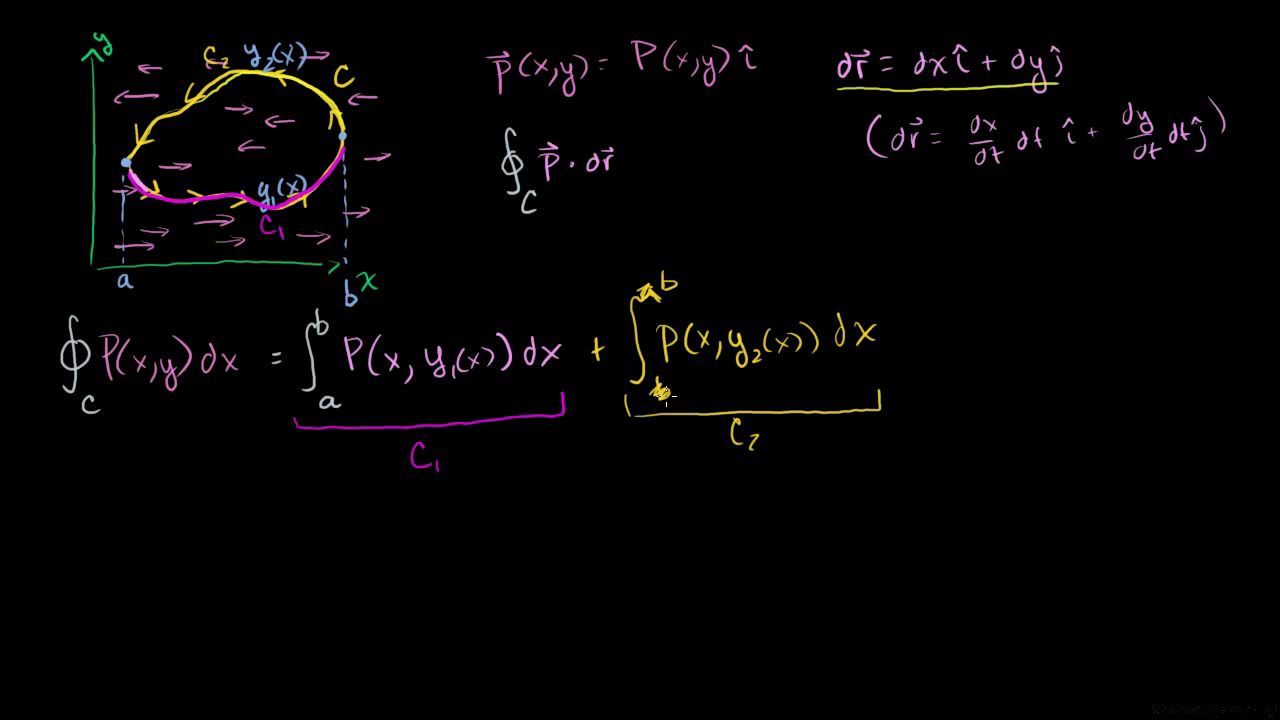 y
C₂ y₂(x)
C
y₁(x)
C₁
a
b
x
p⃗(x,y) = P(x,y) î
dr⃗ = dx î + dy ĵ
(dr⃗ = dx/dt dt î + dy/dt dt ĵ)
∮_C p⃗ · dr⃗
∮_C P(x,y) dx = ∫_a^b P(x, y₁(x)) dx + ∫^b P(x, y₂(x)) dx
C₁
C₂